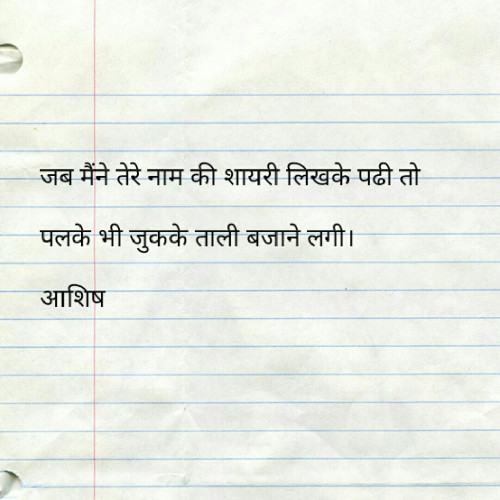 जब मैंने तेरे नाम की शायरी लिखके पढी तो
पलके भी जुकके ताली बजाने लगी।
आशिष